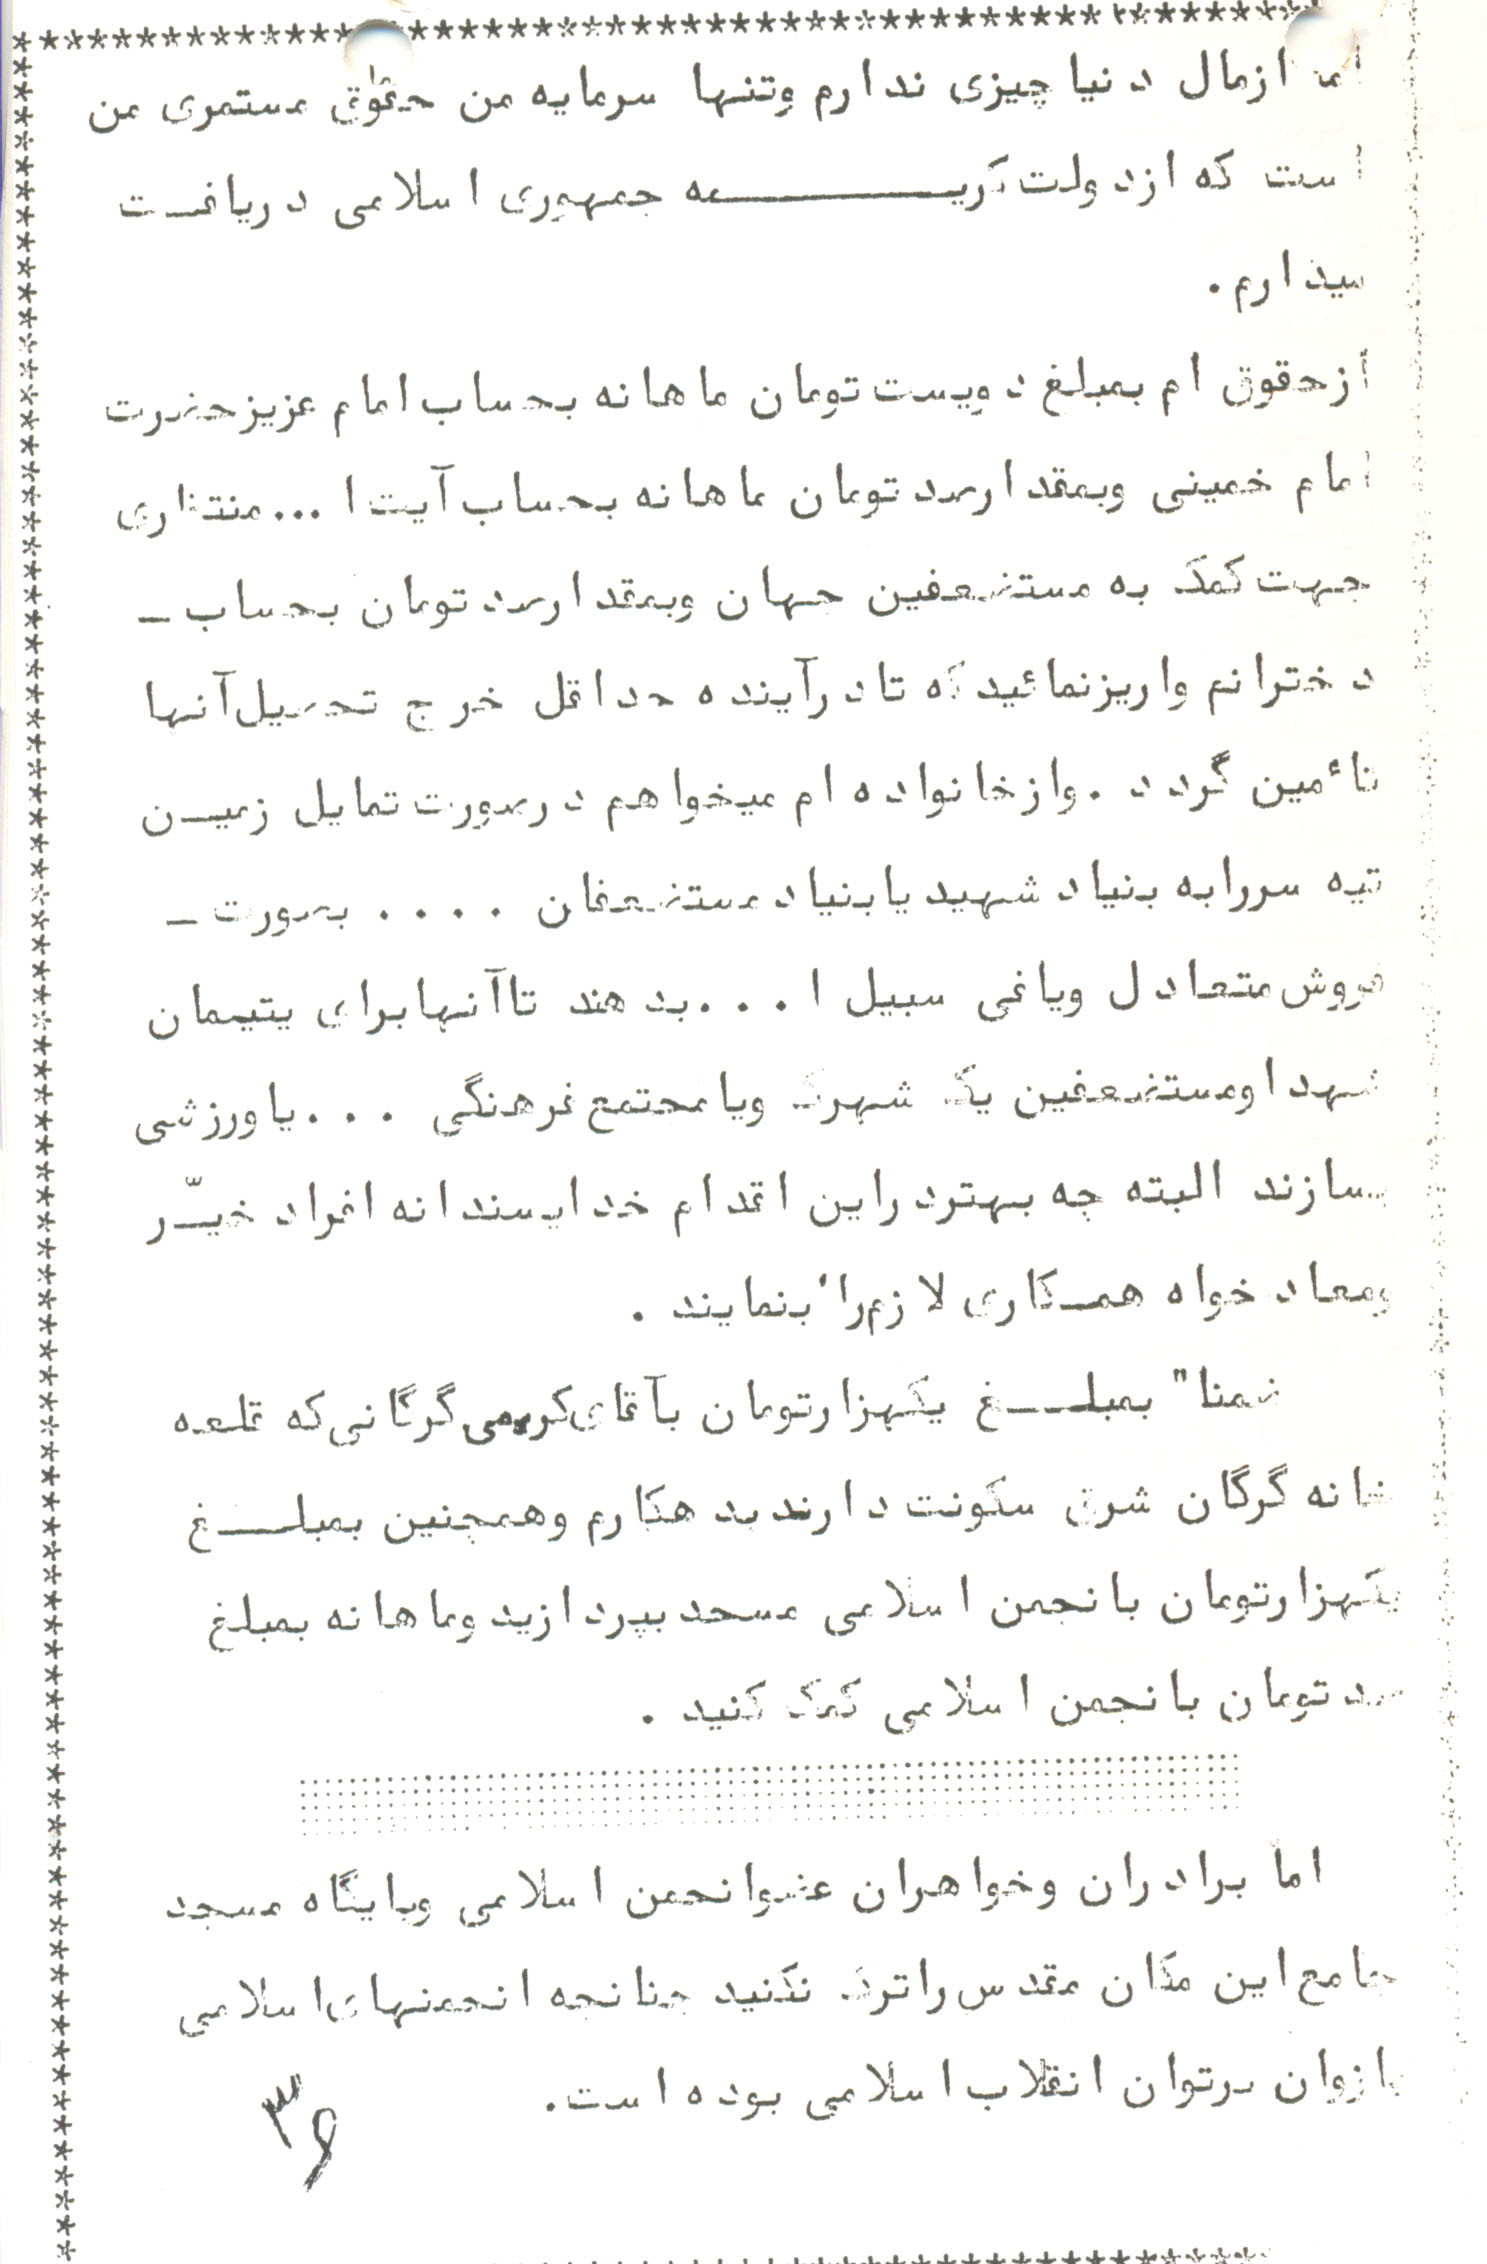 اما ازمال دنیا چیزی ندارم وتنها سرمایه من حقوق مستمری من
است که ازدولت کریـــــمه جمهوری اسلامی دریافـت
میدارم.
ازحقوق ام بمبلغ دویست تومان ماهانه بحساب امام عزیزحضرت
امام خمینی وبمقدارصد تومان ماهانه بحساب آیت ا ...منتظری
جهت کمک به مستضعفین جهان وبمقدارصد تومان بحساب ـ
دخترانم واریزنمائید که تادرآینده حداقل خرج تحصیل آنها
تاءمین گردد .وازخانواده ام میخواهم درصورت تمایل زمیـن
تپه سررابه بنیاد شهید یابنیاد مستضعفان .... بصورت ـ
فروش متعادل ویافی سبیل ا ...بدهند تاآنهابرای یتیمان
شهداومستضعفین یک شهرک ویامجتمع فرهنگی ...یاورزشی
بسازند البته چه بهتردراین اقدام خداپسندانه افراد خیـّر
ومعاد خواه همـکاری لازم را بنمایند .
ضمنا" بمبلـــغ یکهزارتومان بآقای کریمی گرگانی که قلعه
شانه گرگان شرق سکونت دارند بدهکارم وهمچنین بمبلــغ
یکهزارتومان بانجمن اسلامی مسجد بپردازید وماهانه بمبلغ
صد تومان بانجمن اسلامی کمک کنید .
اما برادران وخواهران عضوانجمن اسلامی وپایگاه مسجد
جامع این مکان مقدس راترک نکنید چنانچه انجمنهای اسلامی
بازوان پرتوان انقلاب اسلامی بوده است.
۳۶